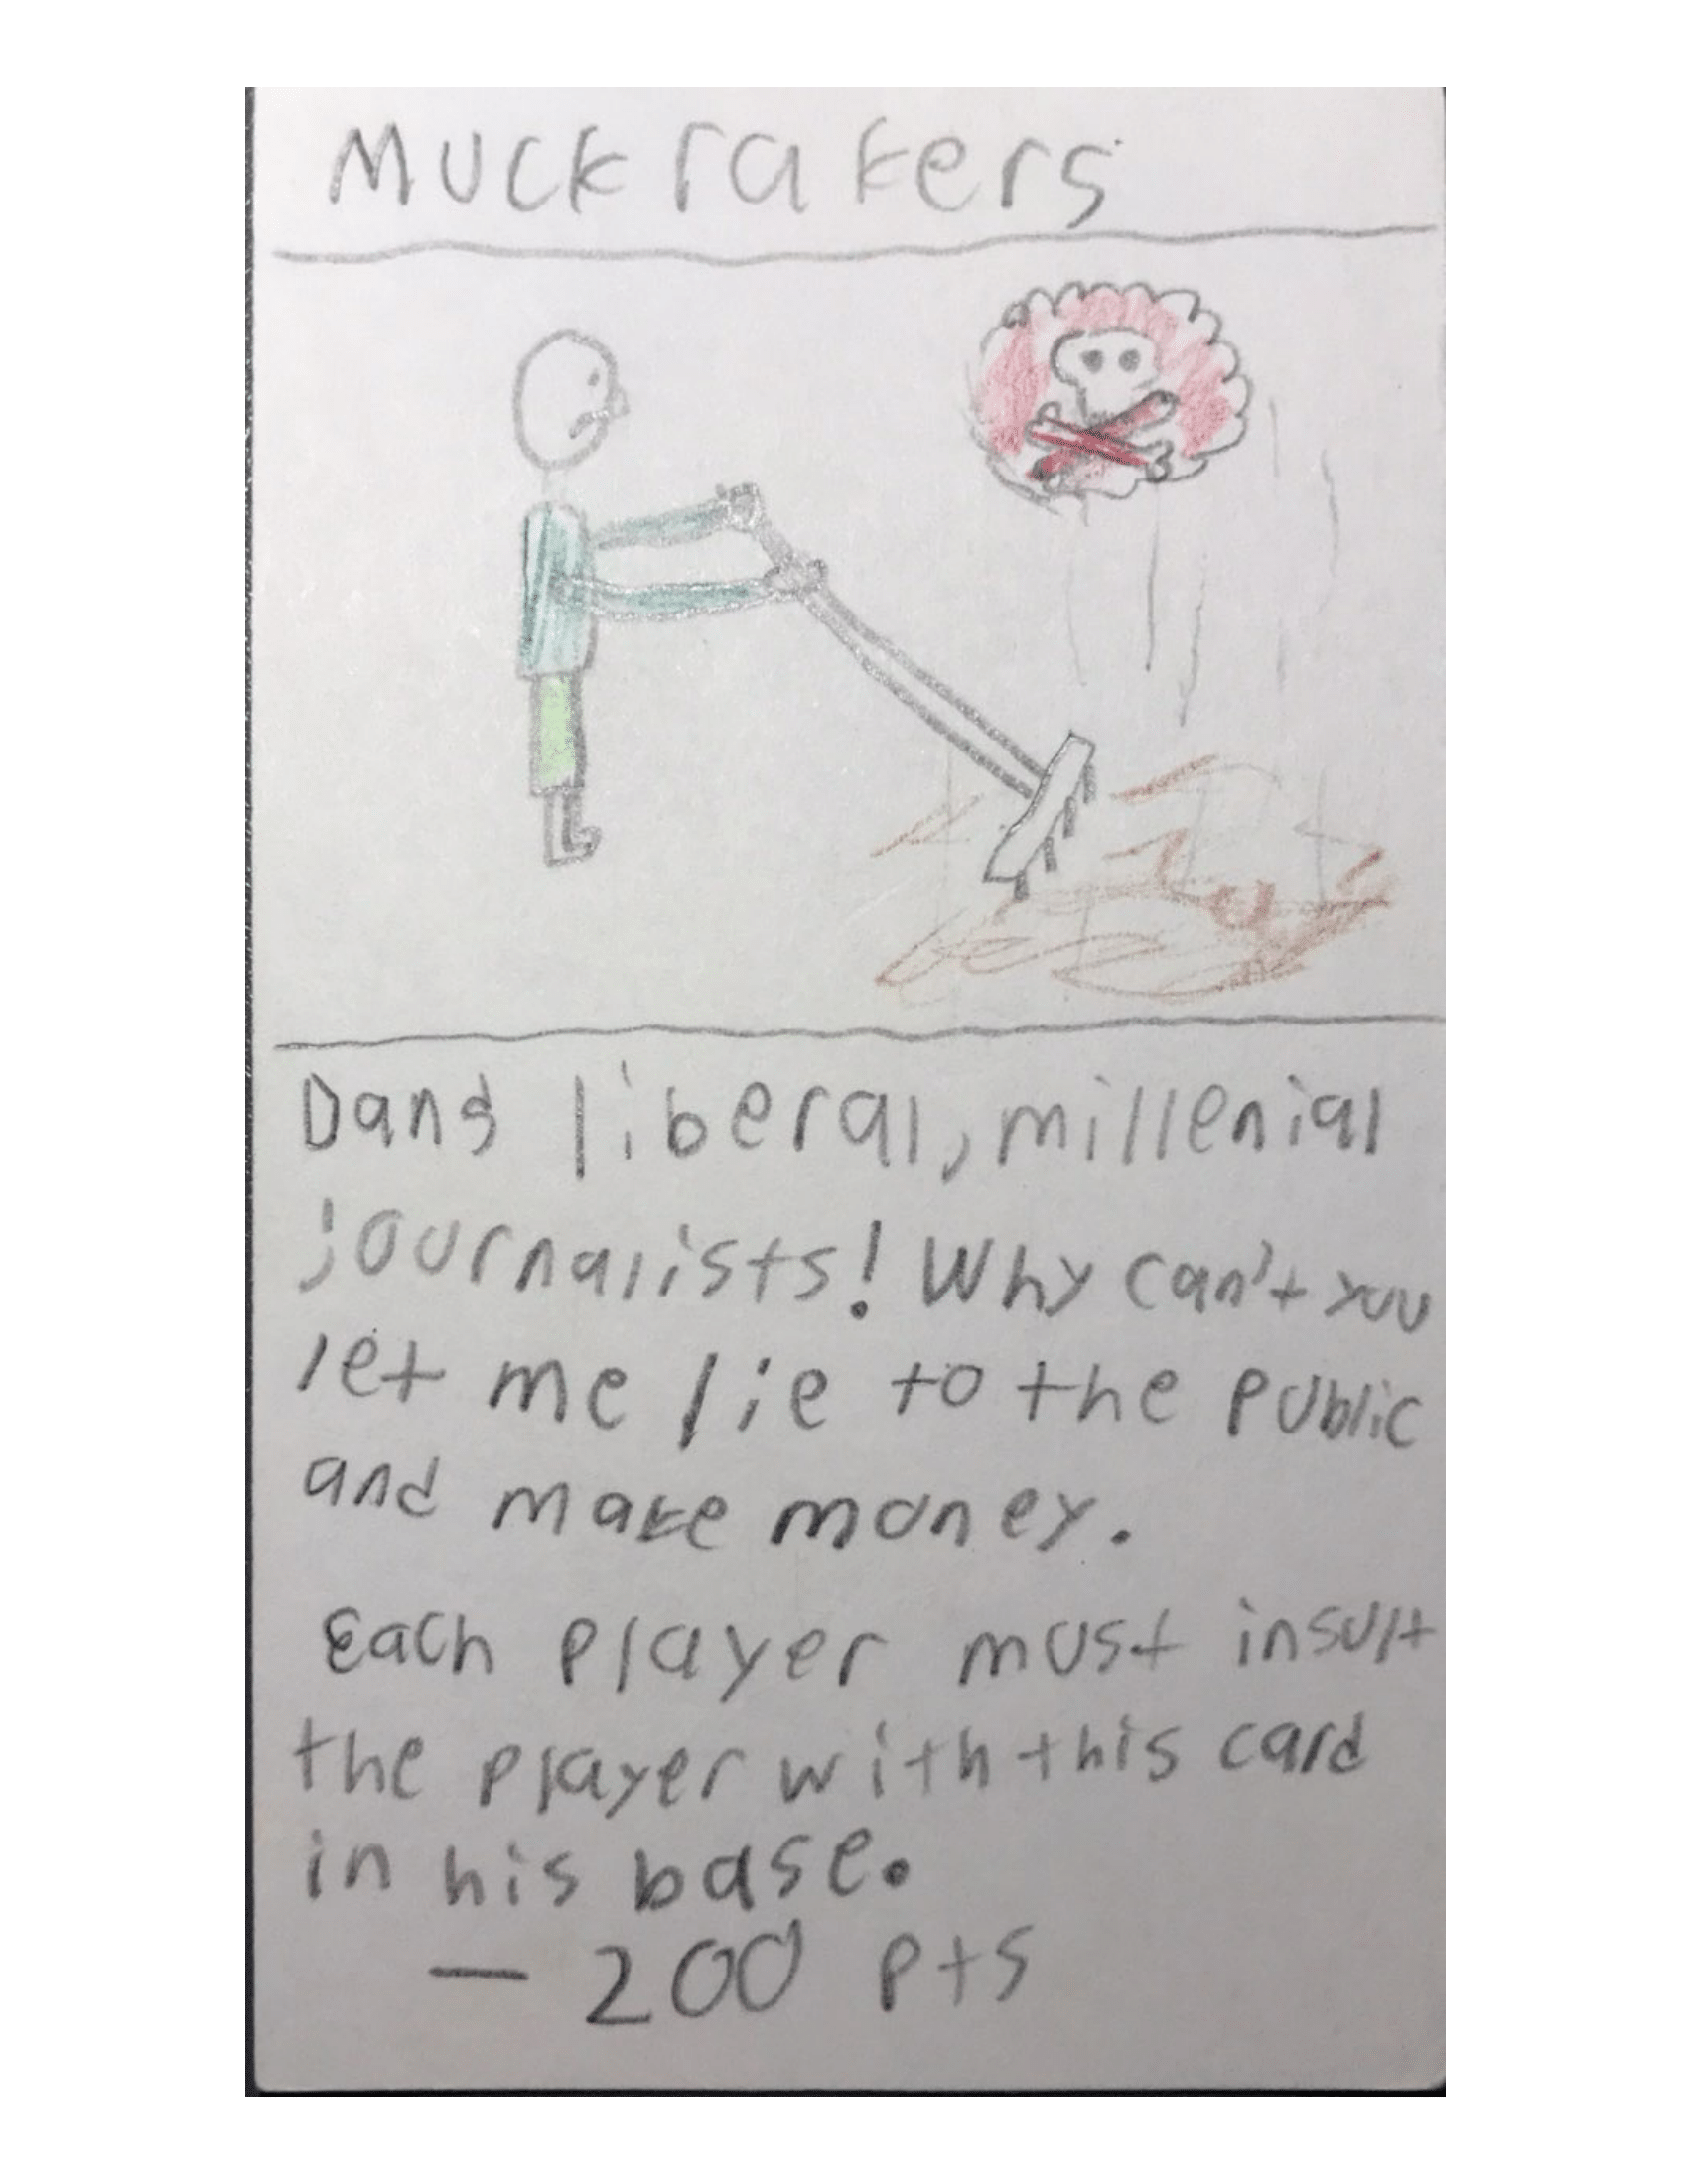 Muckrakers
Dang liberal, millenial
journalists! Why can't you
let me lie to the public
and make money.
Each player must insult
the player with this card
in his base.
- 200 pts